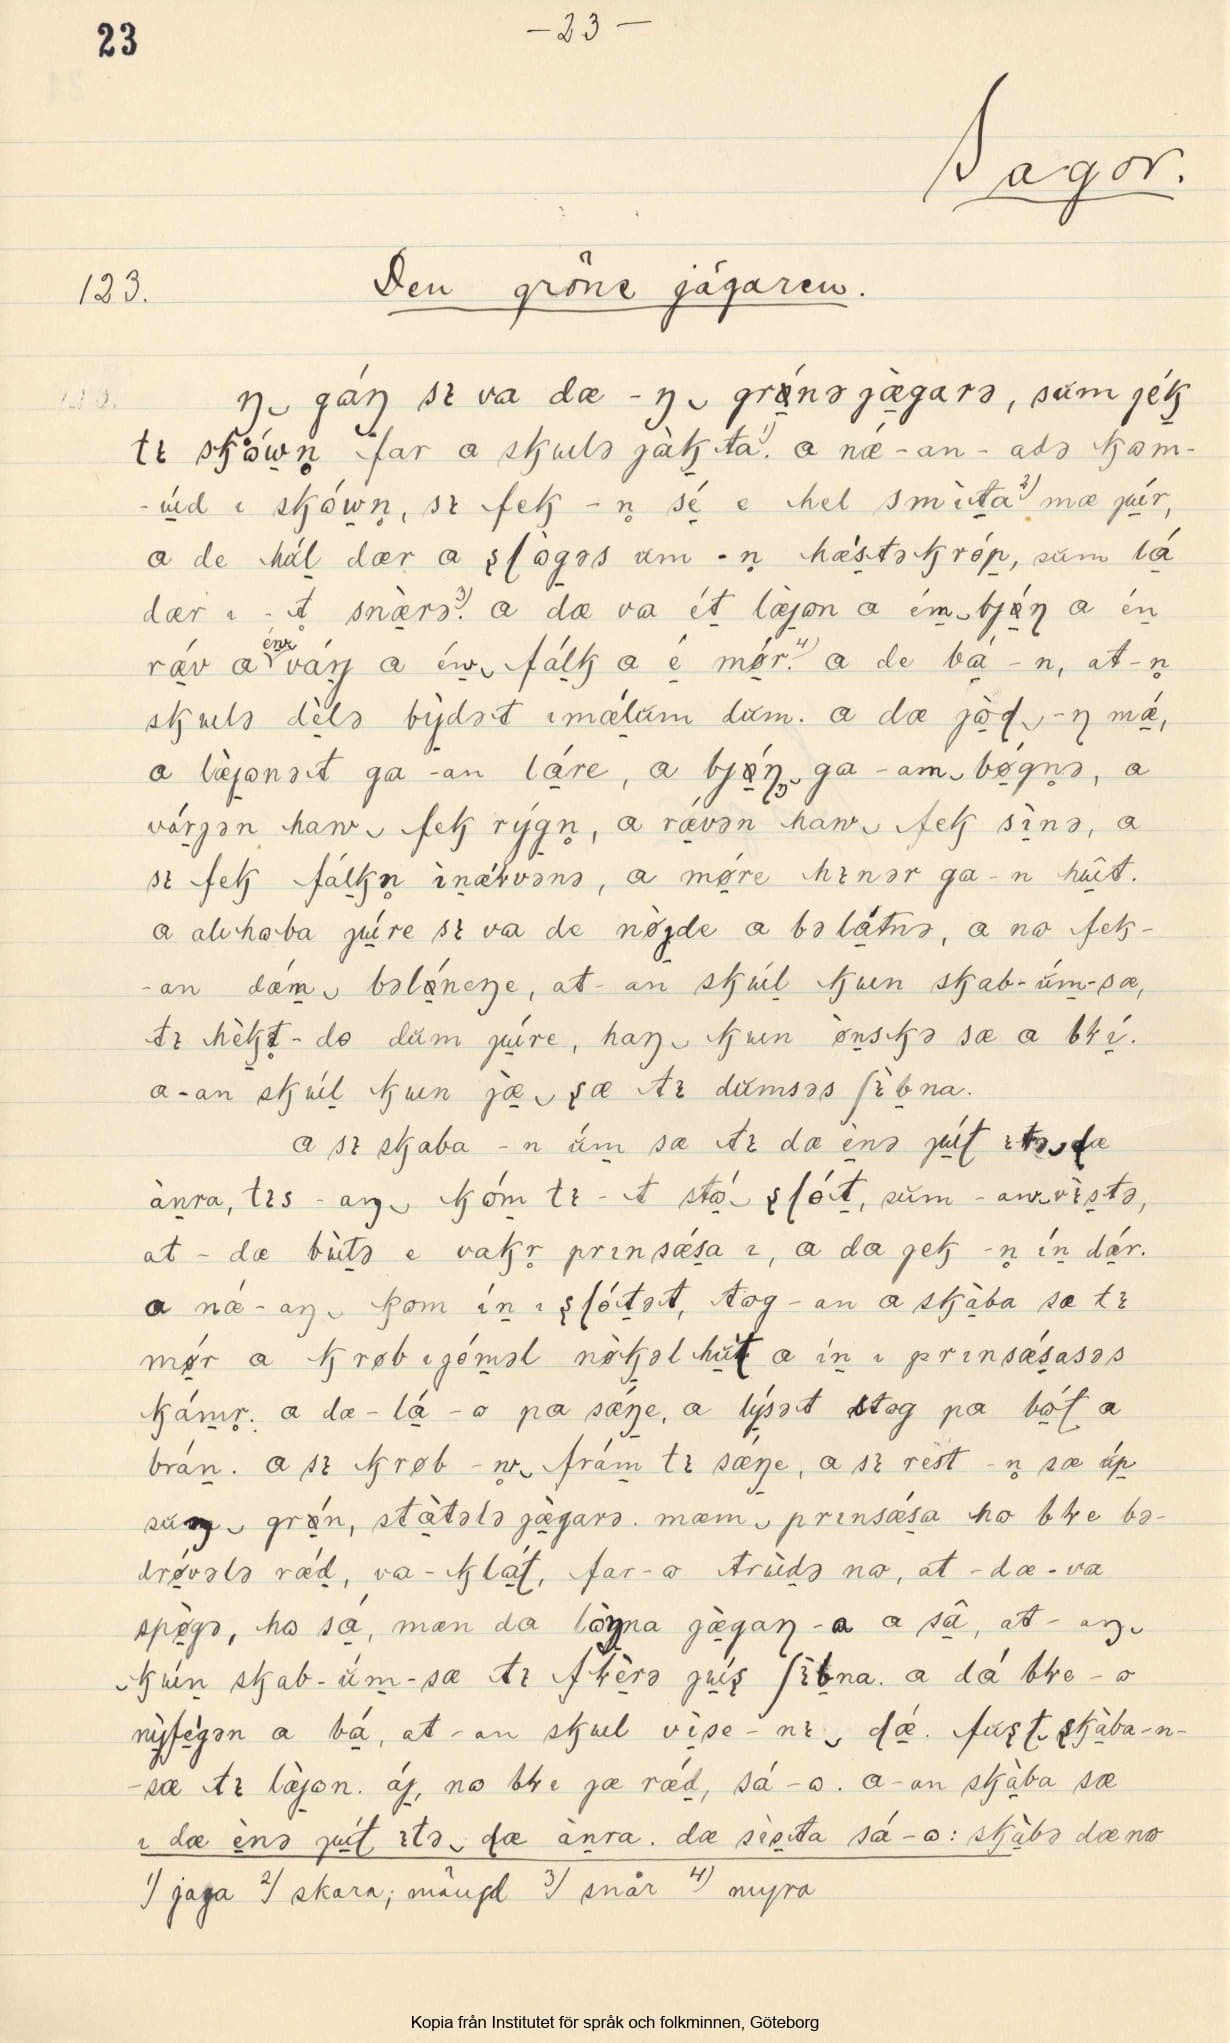 23
-23-
Sagor.
123. Den gröne jägaren.
ŋ gáŋ sɩ va dæ -ŋ grǿnə jæ̀garə, sŭm jék
tɩ skówn̥ far a skulə jàkta¹⁾. a nǽ-an- adə kom-
-úd ı skówn̥, sɩ fek -n̥ sé e hel smìta²⁾ mæ júr,
a de húl dær a ʂʃògəs um -n̥ hǽstəkróp, sum lá
dær ı -t̥ snæ̀rə³⁾. a dæ va ét læ̀jon a ém bjǿŋ a én
rǽv a énw váŋ a énw fálk a é mǿr⁴⁾. a de bá-n, at-n̥
skulə dèlə bỳdət ımǽlŭm dŭm. a dæ jòɖ -ŋ mǽ,
a læ̀jonət ga-an láre, a bjǿŋ ga-am bǿgn̥ə, a
várjən haw fek rýgn̥, a rǽvən haw fek sìnə, a
sɩ fek fálkn̥ ìnǽlvənə, a mǿre hɩnər ga-n hût.
a alıhoba júre sɩ va de nø̀jde a bəlátnə, a no fek-
-an dǽm bəlǿneŋe, at-an skúl kun skab-úm-sæ,
tɩ hèkt̥-do dŭm júre, haŋ kun ø̀nskə sæ a blí.
a-an skúl kun jæ ʂæ tɩ dŭmsəs ʃɩ̀bna.
a sɩ skaba -n úm sæ tɩ dæ ènə júʈ ɩtə ɖæ
ànra, tɩs -aŋ kóm tɩ -t stó ʂʃót, sŭm -aw vìstə,
at-dæ bùtə e vakr̥ prınsǽsa ı, a da jek -n̥ ín dár.
a nǽ-aŋ kom ín ı ʂʃótət, tog-an a skàba sæ tɩ
mǿr a krøb ıjóməl nø̀kəlhŭ̀ʈ a ín ı prınsǽsasəs
kámr̥. a dæ-lá-o pa sǽŋe, a lýsət stog pa bóʈ a
brán. a sɩ krøb -n̥w frám tɩ sǽŋe, a sɩ rest -n̥ sæ úp
sŭŋ grǿn, stàtələ jæ̀garə. mæm prınsǽsa ho ble bə-
drǿvələ rǽd, va-kláʈ, far-o trùdə no, at-dæ-va
spø̀gə, ho sá, mæn da lòŋna jæ̀gaŋ-a a sâ, at-aŋ
kún skab-úm-sæ tɩ flèrə júʂ ʃɩ̀bna. a dá ble-o
nỳfégən a bá, at-an skul vìse-nɩ ɖǽ. fŭʂʈ ʂkàba-n-
-sæ tɩ læ̀jon. áj, no blı jæ rǽd, sá-o. a-an skàba sæ
ı dæ ènə júʈ ɩtə ɖæ ànra. dæ sìsta sá-o: skàbə dæ no
1) jaga 2) skara; mängd 3) snår 4) myra
Kopia från Institutet för språk och folkminnen, Göteborg